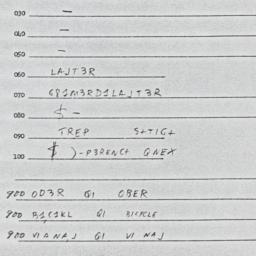 030 –
040 –
050 –
060 LAJT3R
070 G81M3RD1LAJT3R
080 $ –
090 TREP S+TIG+
100 $ )-P3RENC+ GNEX
900 OD3R GI OBER
900 B1C1KL GI BICYCLE
900 VIANAJ GI VI NAJ